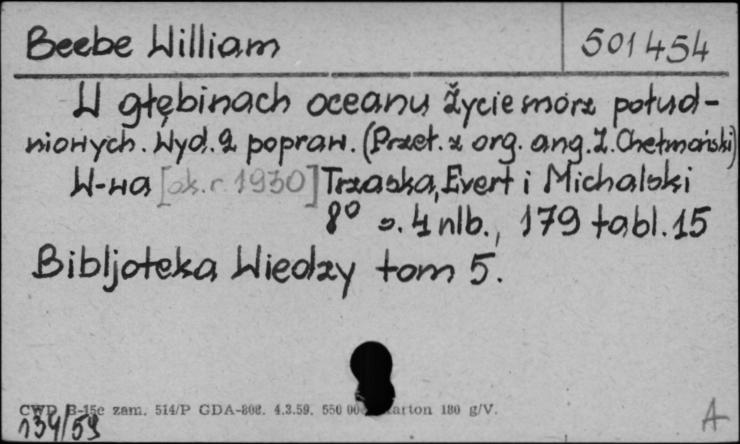 Beebe William
501454
W głębinach oceanu Życie mórz połud-
niowych. Wyd. 2 popraw. (Przeł. z org. ang. J. Chełmoński)
W-wa [ok. r. 1930] Trzaska, Evert i Michalski
8° s. 4 nlb., 179 tabl. 15
Bibljoteka Wiedzy tom 5.
CWD B-15c zam. 514/P GDA-808. 4.3.59. 550 00 karton 180 g/V.
134/59
A